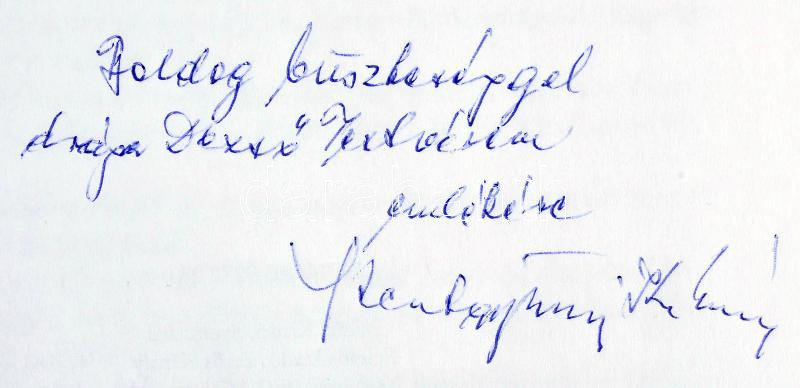 Boldog büszkeséggel
drága Dezső Testvérem
emlékére
Szentgyörgyi